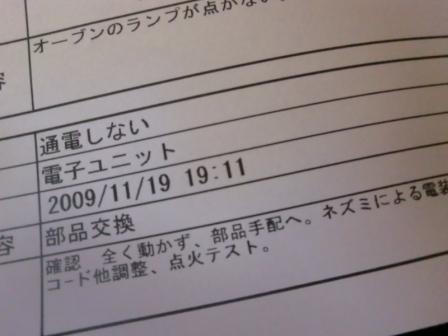 オーブンのランプが点かない
容
通電しない
電子ユニット
2009/11/19 19:11
容 部品交換
確認 全く動かず、部品手配へ。ネズミによる電装
コード他調整、点火テスト。